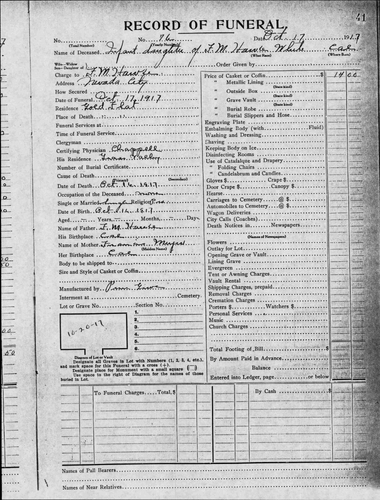 41
RECORD OF FUNERAL
No. 76 Date Oct. 17 1917
(Total Number) (Yearly Number)
Name of Deceased Infant daughter of F. M. Hawke White
Wife—Widow
Son—Daughter of Order Given by
Charge to F. M. Hawke
Address Nevada City
How Secured
Date of Funeral Oct 17, 1917
Residence Gold Flat
Place of Death
Funeral Services at
Time of Funeral Service
Clergyman
Certifying Physician Chappell
His Residence Grass Valley
Number of Burial Certificate
Cause of Death
Date of Death Oct 16, 1917
Occupation of the Deceased none
Single or Married Single Religion
Date of Birth Oct 16 1917
Aged Years Months Days
Name of Father F. M. Hawke
His Birthplace Cal
Name of Mother
Her Birthplace Cal
Body to be shipped to
Size and Style of Casket or Coffin
Manufactured by
Interment at Cemetery
Lot or Grave No. Section No.
1
2
3
4
5
6
10-20-17
Diagram of Lot or Vault
Designate all Graves in Lot with Numbers (1, 2, 3, 4, etc.),
and mark space for this Funeral with a cross (+)
Designate place for Monument with a small square
Use to the right of Diagram for the names of those
buried in Lot.
Price of Casket or Coffin 14 00
" Metallic Lining
" Outside Box
" Grave Vault
" Burial Robe
" Burial Slippers and Hose
Engraving Plate
Embalming Body (with Fluid)
Washing and Dressing
Shaving
Keeping Body on Ice
Disinfecting Rooms
Use of Catafalque and Drapery
" Folding Chairs
" Candelabrum and Candles
Gloves $ Crape $
Door Crape $ Canopy $
Hearse
Carriages to Cemetery @ $
Automobiles to Cemetery @ $
Wagon Deliveries
City Calls (Coaches)
Death Notices in Newspapers
(Names of Newspapers)
Flowers
Outlay for Lot
Opening Grave or Vault
Lining Grave
Evergreen
Tent or Awning Charges
Vault Rental
Shipping Charges, prepaid
Removal Charges
Cremation Charges
Porters $ Watchers $
Personal Services
Music
Church Charges
Total Footing of Bill
By Amount Paid in Advance
Balance
Entered into Ledger, page or below.
To Funeral Charges Total By Balance
Names of Pall Bearers
Names of Near Relatives